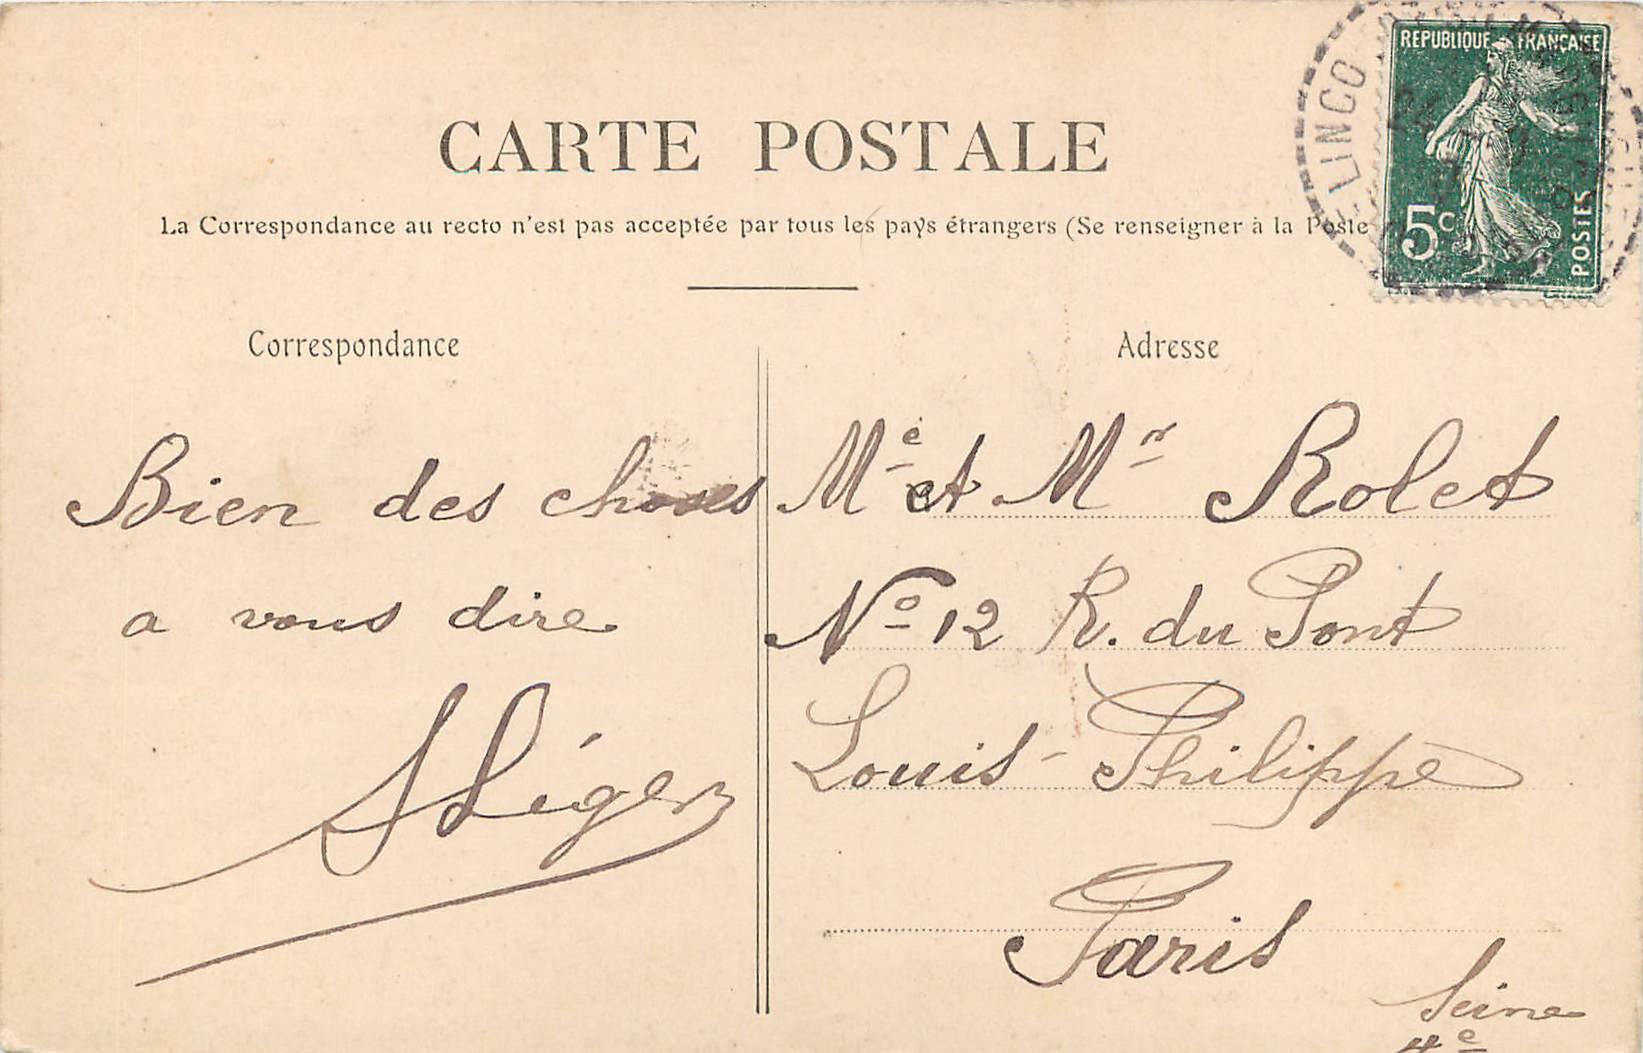 RÉPUBLIQUE FRANÇAISE
5c
POSTES
LINCO
CARTE POSTALE
La Correspondance au recto n'est pas acceptée par tous les pays étrangers (Se renseigner à la Poste
Correspondance
Adresse
Bien des choses
a vous dire
Léger
Me et Mr Rolet
No 12 R. du Pont
Louis-Philippe
Paris
Seine
4e